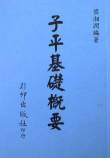 梁湘潤編著
子平基礎概要
行卯出版社印行